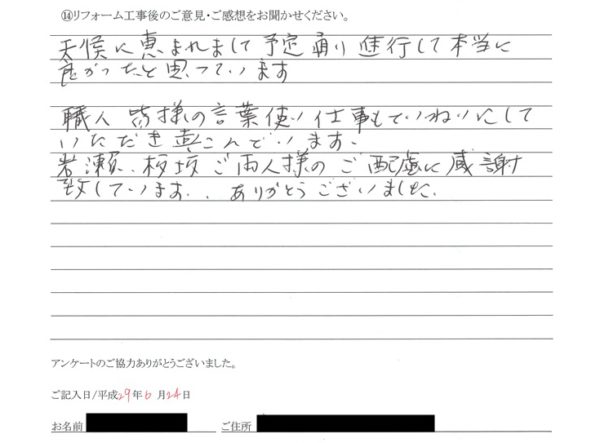 ⑭リフォーム工事後のご意見・ご感想をお聞かせください。
天候に恵まれまして予定通り進行して本当に
良かったと思っています
職人皆様の言葉使い仕事もていねいにして
いただき喜こんでいます。
岩瀬、板坂ご両人様のご配慮に感謝
致しています。ありがとうございました。
アンケートのご協力ありがとうございました。
ご記入日/平成29年6月24日
お名前 ご住所